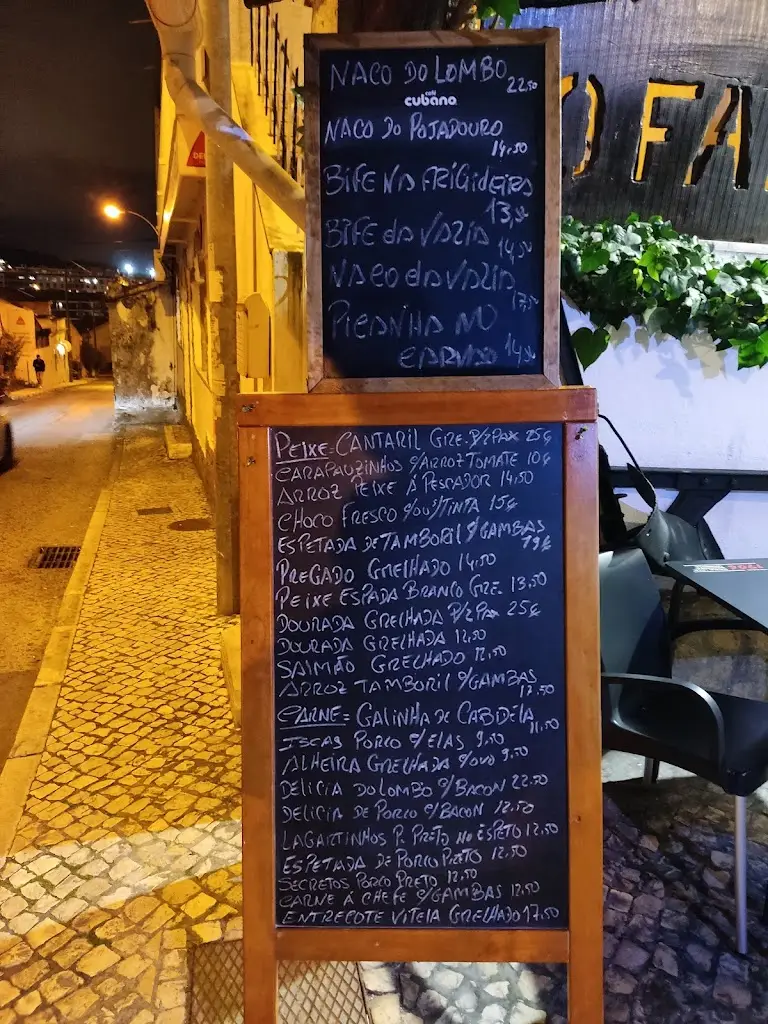 NACO DO LOMBO
22,50
café
cubano
NACO DO POJADOURO
14,50
BIFE NA FRIGIDEIRA
13,50
BIFE DA VAZIA
14,50
NACO DA VAZIA
17,50
PICANHA NO
14,50
O FA
PEIXE=CANTARIL GRE. P/2PAX 25€
CARAPAUZINHOS C/ARROZ TOMATE 10€
ARROZ PEIXE Á PESCADOR 14,50
CHOCO FRESCO C/OU S/TINTA 15€
ESPETADA DE TAMBORIL C/GAMBAS
19€
PREGADO GRELHADO 14,50
PEIXE ESPADA BRANCO GRE. 13,50
DOURADA GRELHADA P/2 PAX 25€
DOURADA GRELHADA 12,50
SALMÃO GRELHADO 12,50
ARROZ TAMBORIL C/GAMBAS
17,50
CARNE= GALINHA DE CABIDELA
11,50
ISCAS PORCO C/ELAS 9,50
ALHEIRA GRELHADA C/OVO 9,50
DELICIA DO LOMBO C/BACON 22,50
DELICIA DE PORCO C/BACON 12,50
LAGARTINHOS P. PRETO NO ESPETO 12,50
ESPETADA DE PORCO PRETO 12,50
SECRETOS PORCO PRETO 12,50
CARNE Á CHEFE C/GAMBAS 12,50
ENTRECOTE VITELA GRELHADO 17,50